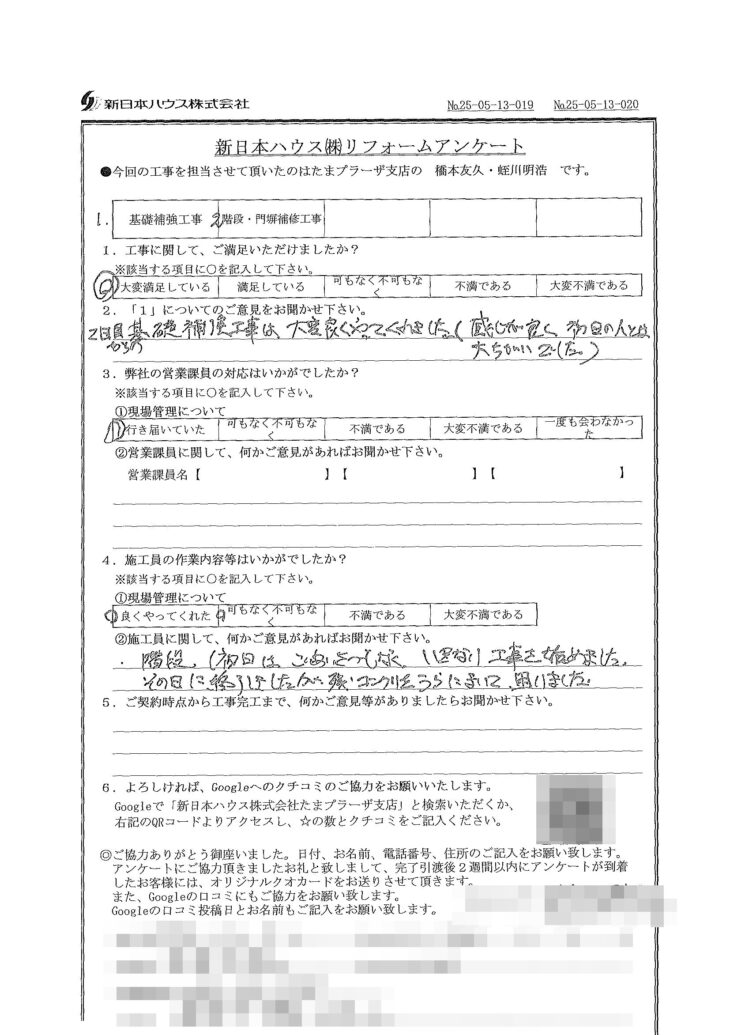 新日本ハウス株式会社
№25-05-13-019 №25-05-13-020
新日本ハウス㈱リフォームアンケート
●今回の工事を担当させて頂いたのはたまプラーザ支店の 橋本友久・蛭川明浩 です。
1. 基礎補強工事 2 階段・門塀補修工事
1．工事に関して、ご満足いただけましたか？
※該当する項目に○を記入して下さい。
大変満足している 満足している 可もなく不可もなく 不満である 大変不満である
2．「1」についてのご意見をお聞かせ下さい。
2回目 基礎補強工事は、大変良くやってくれました。( 感じが良く 初回の人とは
からの 大ちがいでした。)
3．弊社の営業課員の対応はいかがでしたか？
※該当する項目に○を記入して下さい。
①現場管理について
行き届いていた 可もなく不可もなく 不満である 大変不満である 一度も会わなかった
②営業課員に関して、何かご意見があればお聞かせ下さい。
営業課員名【 】【 】【 】
4．施工員の作業内容等はいかがでしたか？
※該当する項目に○を記入して下さい。
①現場管理について
良くやってくれた 可もなく不可もなく 不満である 大変不満である
②施工員に関して、何かご意見があればお聞かせ下さい。
・階段、(初回は、ごあいさつもなく、いきなり工事を始めました。
その日に終了しましたが
5．ご契約時点から工事完工まで、何かご意見等がありましたらお聞かせ下さい。
6．よろしければ、Googleへのクチコミのご協力をお願いいたします。
Googleで「新日本ハウス株式会社たまプラーザ支店」と検索いただくか、
右記のQRコードよりアクセスし、☆の数とクチコミをご記入ください。
◎ご協力ありがとう御座いました。日付、お名前、電話番号、住所のご記入をお願い致します。
アンケートにご協力頂きましたお礼と致しまして、完了引渡後２週間以内にアンケートが到着
したお客様には、オリジナルクオカードをお送りさせて頂きます。
また、Googleの口コミにもご協力をお願い致します。
Googleの口コミ投稿日とお名前もご記入をお願い致します。